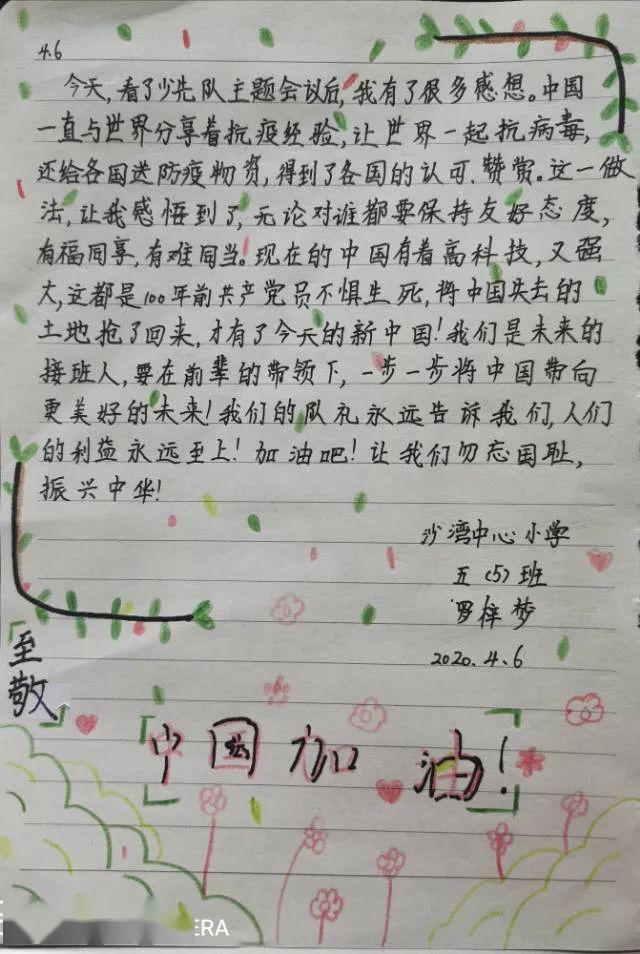 4.6
今天,看了少先队主题会议后,我有了很多感想。中国
一直与世界分享着抗疫经验,让世界一起抗病毒,
还给各国送防疫物资,得到了各国的认可、赞赏。这一做
法,让我感悟到了,无论对谁都要保持友好态度,
有福同享,有难同当。现在的中国有着高科技,又强
大,这都是100年前共产党员不惧生死,将中国失去的
土地抢了回来,才有了今天的新中国!我们是未来的
接班人,要在前辈的带领下,一步一步将中国带向
更美好的未来!我们的队礼永远告诉我们,人们
的利益永远至上!加油吧!让我们勿忘国耻,
振兴中华!
沙湾中心小学
五(5)班
罗梓梦
2020.4.6
至敬
中国加油!
ERA